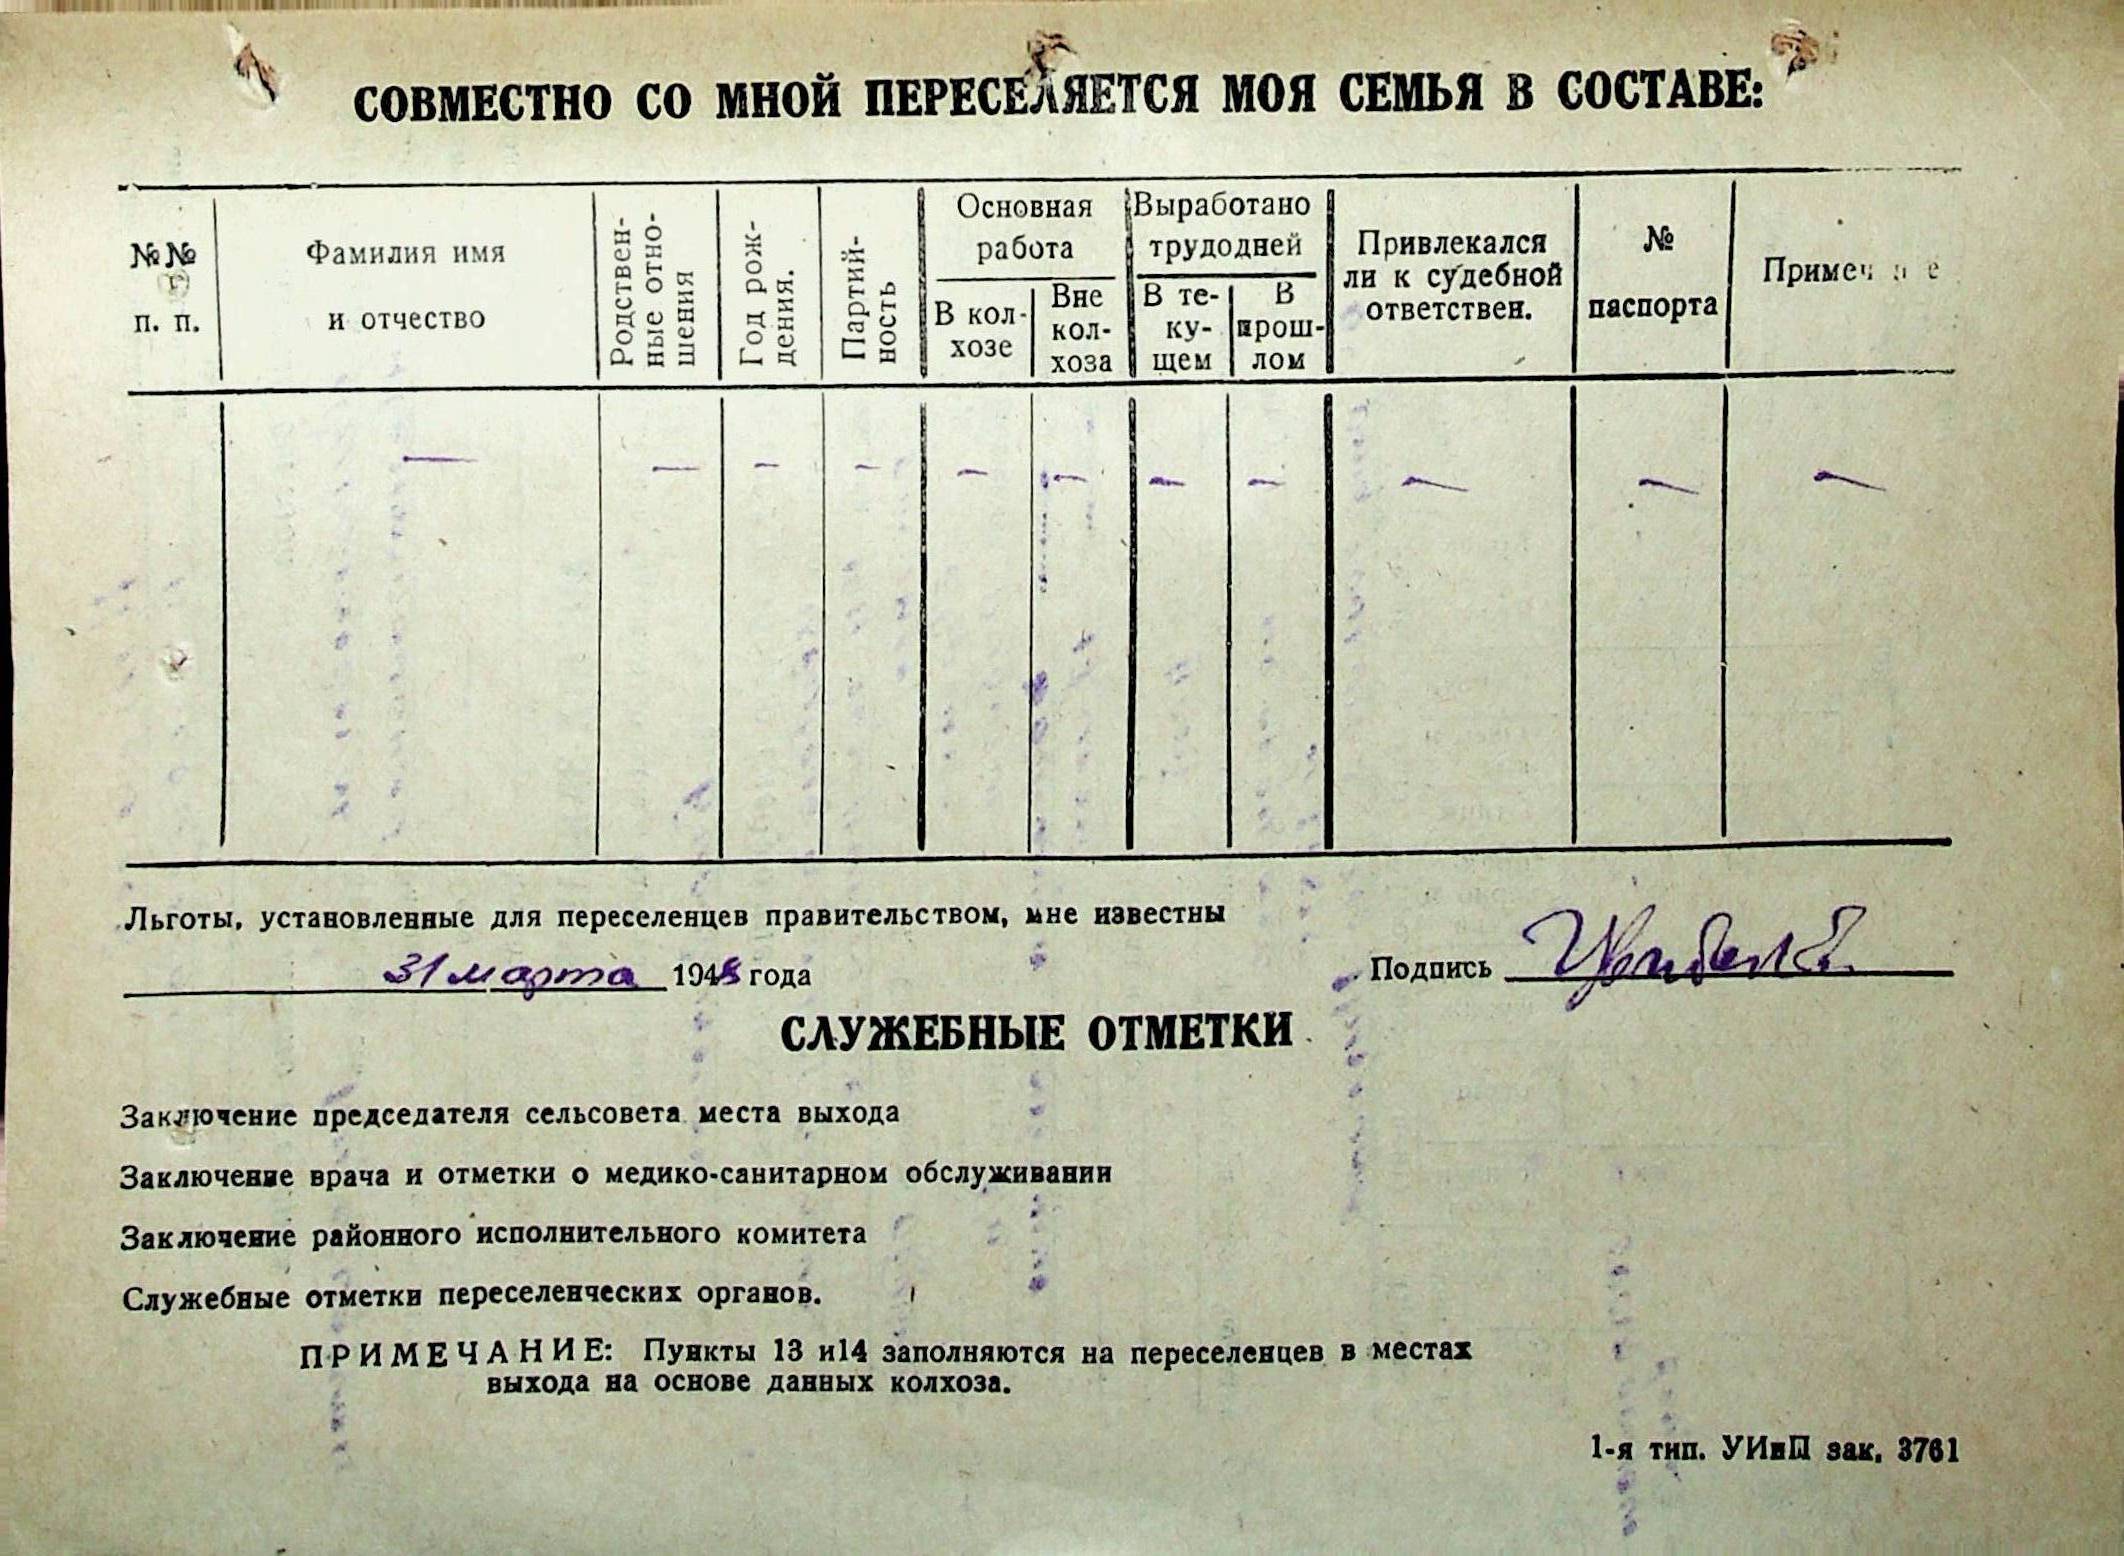 СОВМЕСТНО СО МНОЙ ПЕРЕСЕЛЯЕТСЯ МОЯ СЕМЬЯ В СОСТАВЕ:
№№ п. п.
Фамилия имя и отчество
Родствен- ные отно- шения
Год рож- дения.
Партий- ность
Основная работа
В кол- хозе
Вне кол- хоза
Выработано трудодней
В те- ку- щем
В прош- лом
Привлекался ли к судебной ответствен.
№ паспорта
— — — — — — — — — — —
Льготы, установленные для переселенцев правительством, мне известны
31 марта 1948 года
Подпись
СЛУЖЕБНЫЕ ОТМЕТКИ
Заключение председателя сельсовета места выхода
Заключение врача и отметки о медико-санитарном обслуживании
Заключение районного исполнительного комитета
Служебные отметки переселенческих органов.
ПРИМЕЧАНИЕ: Пункты 13 и14 заполняются на переселенцев в местах
выхода на основе данных колхоза.
1-я тип. УИиП зак. 3761